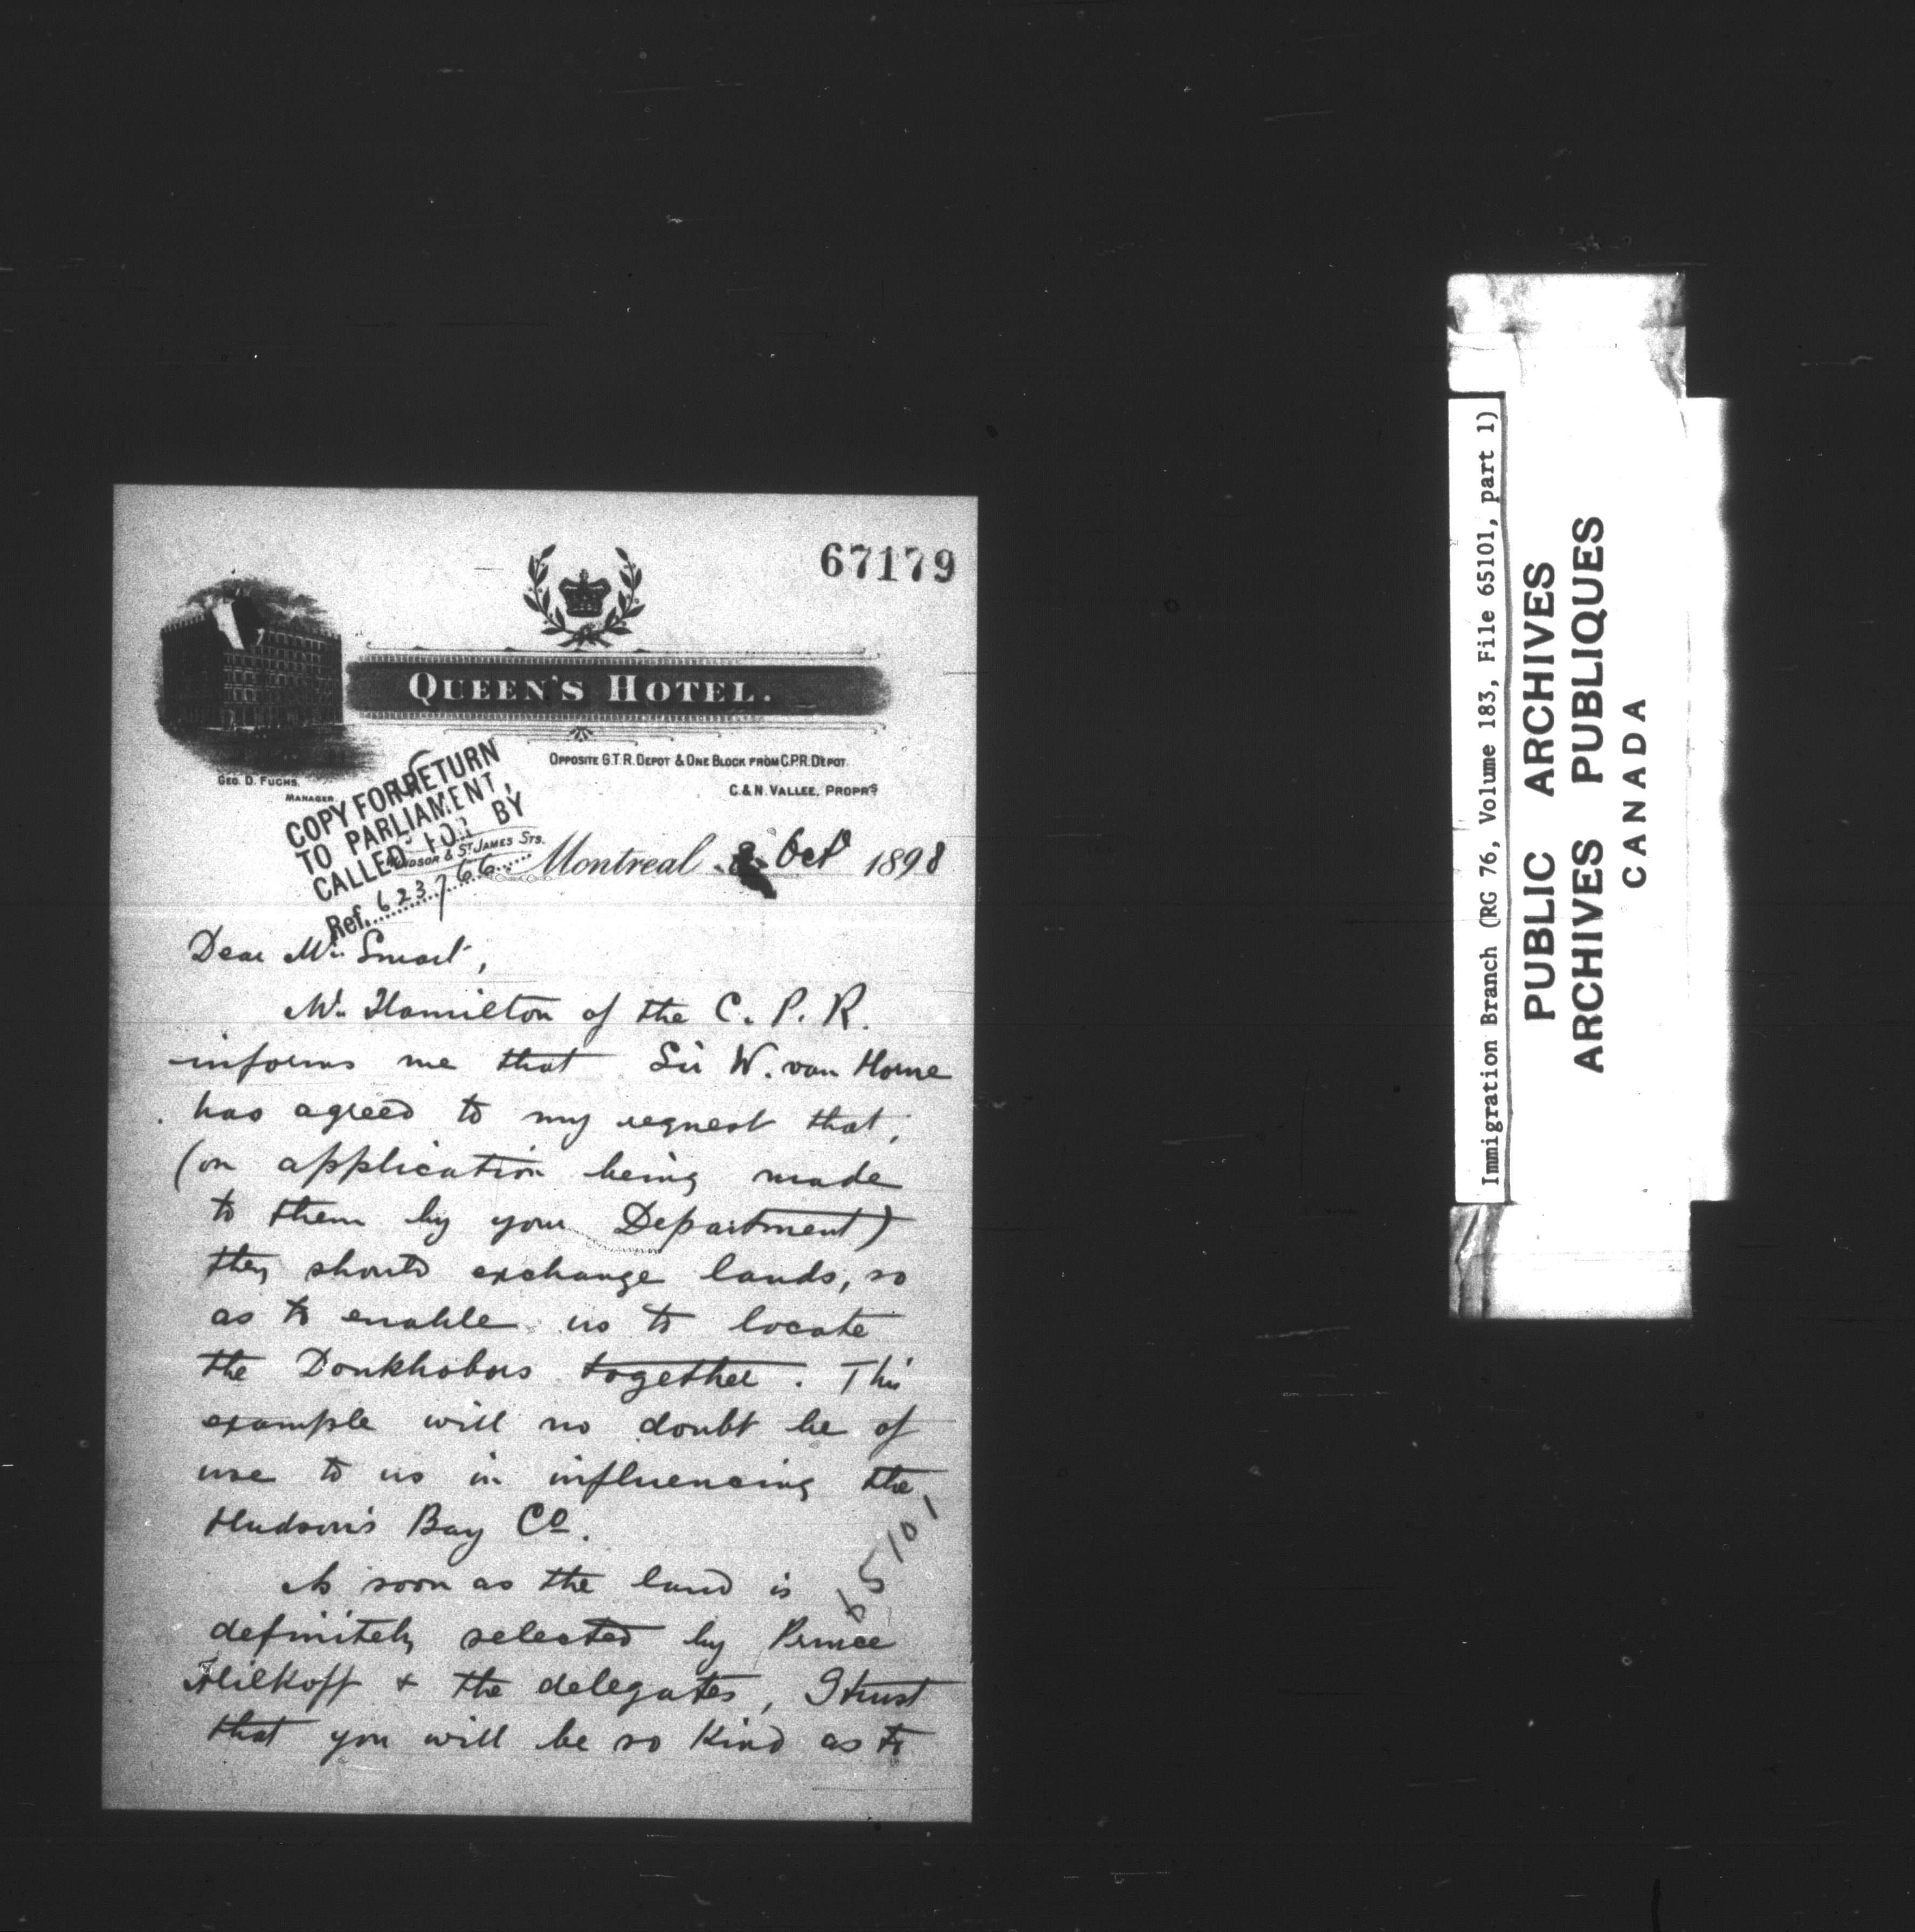 67179
QUEEN'S HOTEL.
OPPOSITE G.T.R. DEPOT & ONE BLOCK FROM C.P.R. DEPOT.
C. & N. VALLEE, PROPRS
GEO. D. FUCHS.
MANAGER
COPY FOR RETURN
TO PARLIAMENT,
CALLED FOR BY
Ref. 623766
WINDSOR & ST JAMES STS.
Montreal 8 Oct 1898
Dear Mr. Smart,
Mr. Hamilton of the C. P. R.
informs me that Sir W. van Horne
has agreed to my request that,
(on application being made
to them by your Department)
they should exchange lands, so
as to enable us to locate
the Doukhobors together. This
example will no doubt be of
use to us in influencing the
Hudson's Bay Co.
65101
As soon as the land is
definitely selected by Prince
Hilkoff & the delegates, I trust
that you will be so kind as to
Immigration Branch (RG 76, Volume 183, File 65101, part 1)
PUBLIC ARCHIVES
ARCHIVES PUBLIQUES
CANADA